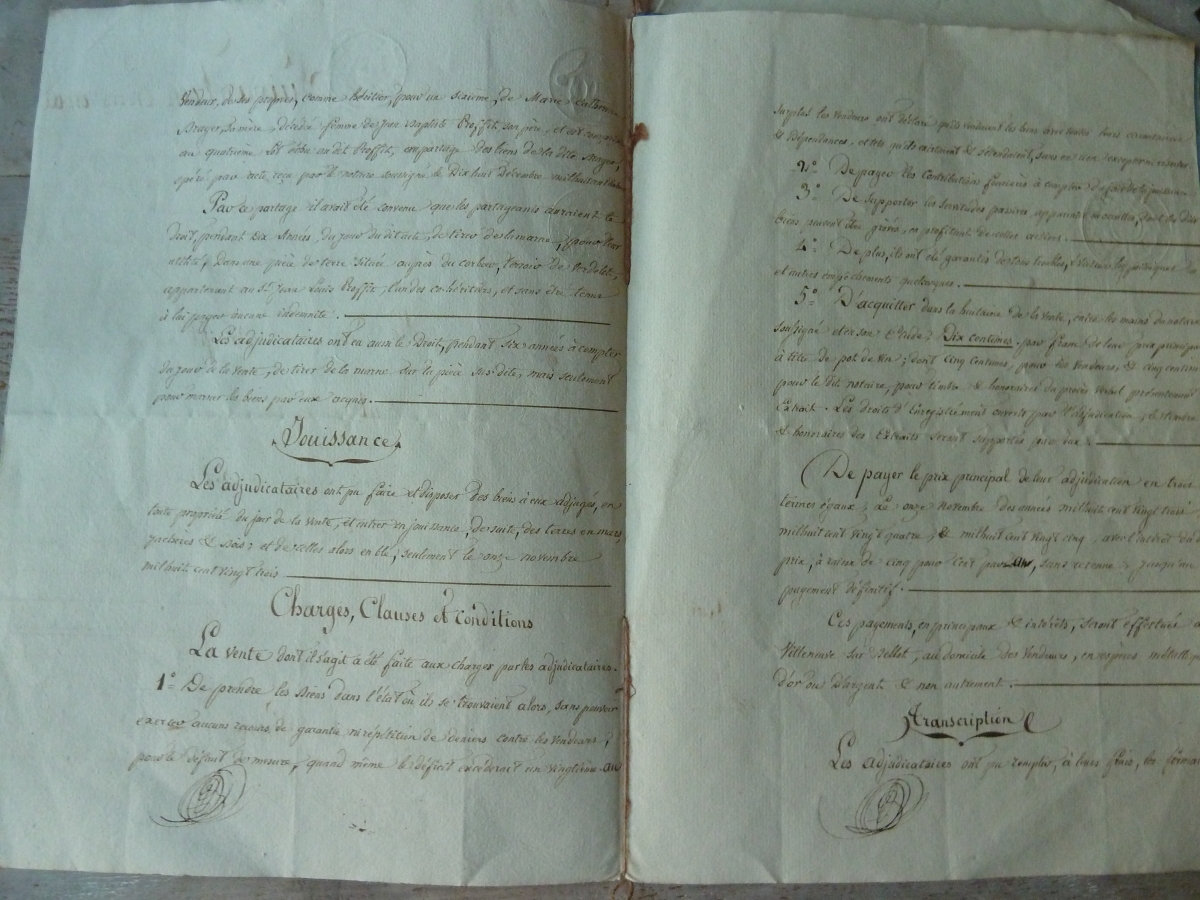 Vendeur, de ses propres, comme héritier, pour un sixième, de Marie
sa mère, décédée femme de Jean Baptiste Proffit, son père, et est
au quatrième lot échu audit Proffit, au partage des biens de la dite
opéré par acte reçu par le notaire soussigné le Dix huit décembre
Par ce partage il avait été convenu que les partageants auraient le
droit, pendant Dix Années, du jour du dit acte, de tirer de la marne,
dans une pièce de terre située auprès du terroir de Verdelot,
appartenant au Sr. Jean Louis Proffit, l'un des cohéritiers, et sans être tenus
à lui payer aucune indemnité.
Les adjudicataires ont eu aussi le Droit, pendant six années à compter
du jour de la vente, de tirer de la marne sur la pièce sus-dite, mais seulement
pour marner les biens par eux acquis.
Jouissance
Les adjudicataires ont pu faire et disposer des biens à eux adjugés, en
toute propriété du jour de la vente, et entrer en jouissance, de suite, des terres en mars,
jachères & bois; et de celles alors en blé, seulement le onze novembre
mil huit cent vingt trois
Charges, Clauses Et conditions
La vente dont il s'agit a été faite aux charges par les adjudicataires.
1° De prendre les biens dans l'état où ils se trouvaient alors, sans pouvoir
exercer aucuns recours de garantie ni répétition de deniers contre les vendeurs,
pour le défaut de mesure, quand même le déficit excéderait un vingtième au
surplus les vendeurs ont déclaré qu'ils vendaient les biens avec toutes leurs
& dépendances, et tels qu'ils existaient & s'étendaient, sans en rien excepter ni réserver
2° De payer les Contributions foncières à compter du jour de la jouissance
3° De Supporter les Servitudes passives, apparentes ou occultes, dont les dits
biens peuvent être grévés, en profitant de celles actives.
4° De plus, ils ont été garantis de tous troubles,
et autres empêchements quelconques.
5° D'acquitter dans la huitaine de la vente, entre les mains du notaire
soussigné et en son Etude; Dix centimes par franc de leur prix principal
à titre de pot de vin; dont cinq Centimes, pour les vendeurs, & cinq centimes
pour le dit notaire, pour timbre & honoraires du procès verbal présentement
Extrait. Les droits d'Enregistrement ouverts par l'adjudication, le timbre
& honoraires des Extraits seront supportés par eux.
De payer le prix principal de leur adjudication en trois
termes égaux; Le onze novembre des années mil huit cent vingt trois
mil huit cent vingt quatre, & mil huit cent vingt cinq, avec l'intérêt du dit
prix, à raison de cinq pour Cent par an, sans retenue & jusqu'au
payement définitif.
Ces payements, en principaux & intérêts, seront effectués à
Villeneuve sur Bellot, au domicile des Vendeurs, en espèces métalliques
d'or ou d'argent & non autrement.
Transcription
Les adjudicataires ont pu remplir, à leurs frais, les